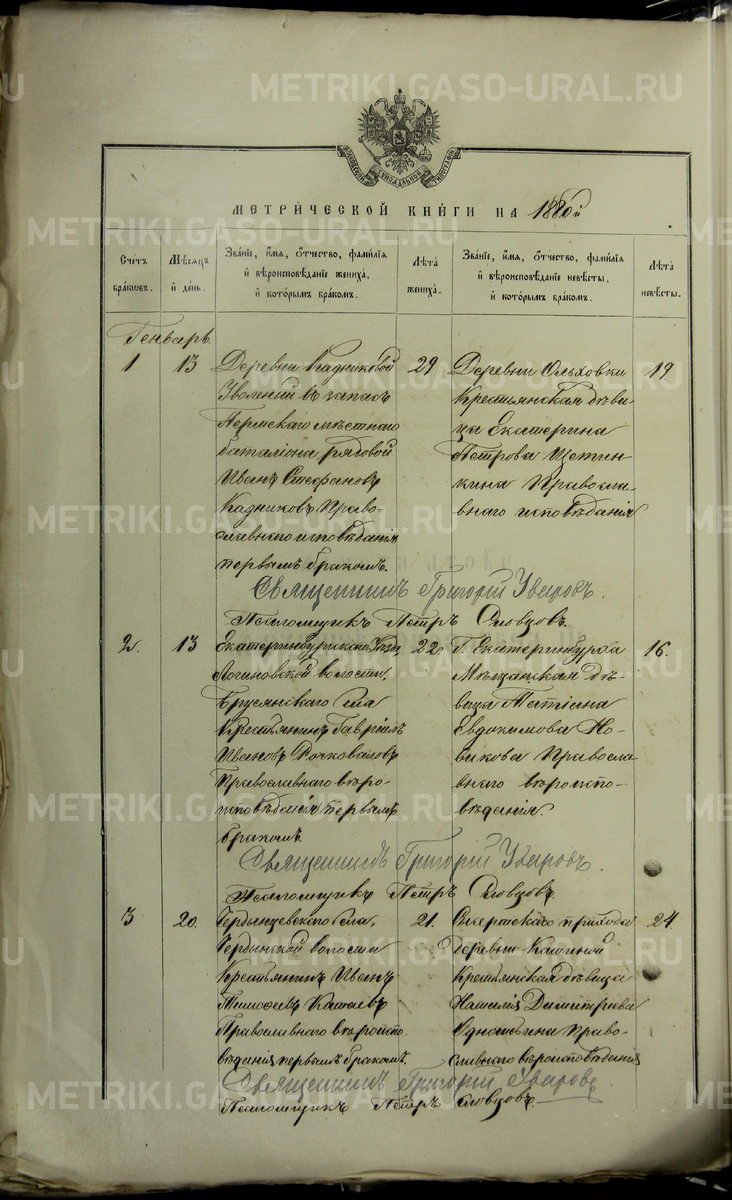 METRIKI.GASO-URAL.RU
МЕТРИ́ЧЕСКОЙ КНИ́ГИ НА 1880й
Счетъ бра́ковъ.
Мѣ́сяцъ и҆ де́нь.
Зва́нїе, и҆́мя, ѻ҆́тчество, фами́лїя и҆ вѣроисповѣ́данїе жениха̀, и҆ кото́рымъ бра́комъ.
Лѣ́та жениха̀.
Зва́нїе, и҆́мя, ѻ҆́тчество, фами́лїя и҆ вѣроисповѣ́данїе невѣ́сты, и҆ кото́рымъ бра́комъ.
Лѣ́та невѣ́сты.
Генварь
1
13
Деревни Кадниковой
Уволеный въ запасъ
Пермскаго мѣстнаго
баталіона рядовой
Иванъ Стефановъ
Кадниковъ Право-
славнаго исповѣданія
первымъ бракомъ.
29
Деревни Ольховки
Крестьянская дѣви-
ца Екатерина
Петрова Щетин-
кина Правосла-
внаго исповѣданія
19
Священникъ Григорій Уваровъ.
Псаломщикъ Петръ Словцовъ.
2.
13
Екатеринбургскаго Уѣзд.
Логиновской волости,
Брусянскаго села
Крестьянинъ Гавріилъ
Ивановъ
Православнаго вѣро-
исповѣданія первымъ
бракомъ.
22
Г. Екатеринбурга
Мѣщанская дѣ-
вица Татіана
Евдокимова Но-
викова Правосла-
внаго вѣроиспо-
вѣданія.
16.
Священникъ Григорій Уваровъ.
Псаломщикъ Петръ Словцовъ.
3
20.
села,
волости
Крестьянинъ Иванъ
Тимофеевъ Катаевъ
Православнаго вѣроиспо-
вѣданія первымъ бракомъ.
21.
Сысертскаго прихода
Деревни Кашиной
Крестьянская дѣвица
Наталія Димитріева
Право-
славнаго вѣроисповѣданія
24
Священникъ Григорій Уваровъ
Псаломщикъ Петръ Словцовъ.